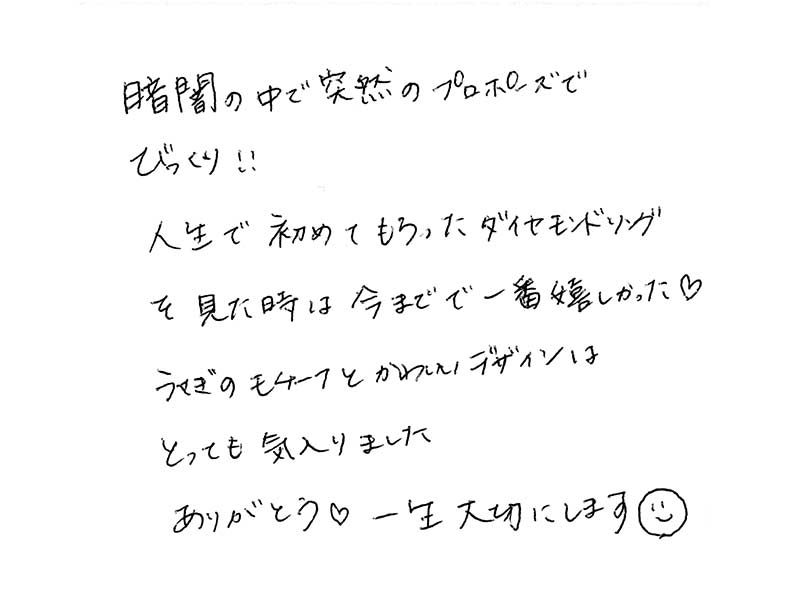 暗闇の中で突然のプロポーズで
びっくり!!
人生で初めてもらったダイヤモンドリング
を見た時は今までで一番嬉しかった♡
うさぎのモチーフとかわいいデザインは
とっても気入りました
ありがとう♡ 一生大切にします☺